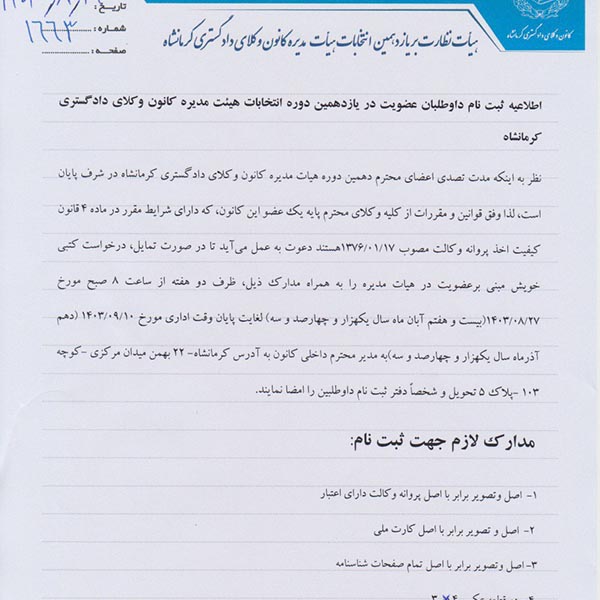 تاریخ :
شماره : ۱۶۶۳
صفحه :
کانون وکلای دادگستری کرمانشاه
هیأت نظارت بر یازدهمین انتخابات هیأت مدیره کانون وکلای دادگستری کرمانشاه
اطلاعیه ثبت نام داوطلبان عضویت در یازدهمین دوره انتخابات هیئت مدیره کانون وکلای دادگستری
کرمانشاه
نظر به اینکه مدت تصدی اعضای محترم دهمین دوره هیات مدیره کانون وکلای دادگستری کرمانشاه در شرف پایان
است، لذا وفق قوانین و مقررات از کلیه وکلای محترم پایه یک عضو این کانون، که دارای شرایط مقرر در ماده ۴ قانون
کیفیت اخذ پروانه وکالت مصوب ۱۳۷۶/۰۱/۱۷هستند دعوت به عمل می‌آید تا در صورت تمایل، درخواست کتبی
خویش مبنی برعضویت در هیات مدیره را به همراه مدارک ذیل، ظرف دو هفته از ساعت ۸ صبح مورخ
۱۴۰۳/۰۸/۲۷(بیست و هفتم آبان ماه سال یکهزار و چهارصد و سه) لغایت پایان وقت اداری مورخ ۱۴۰۳/۰۹/۱۰ (دهم
آذرماه سال یکهزار و چهارصد و سه)به مدیر محترم داخلی کانون به آدرس کرمانشاه- ۲۲ بهمن میدان مرکزی -کوچه
۱۰۳ -پلاک ۵ تحویل و شخصاً دفتر ثبت نام داوطلبین را امضا نمایند.
مدارک لازم جهت ثبت نام:
۱- اصل وتصویر برابر با اصل پروانه وکالت دارای اعتبار
۲- اصل و تصویر برابر با اصل کارت ملی
۳-اصل وتصویر برابر با اصل تمام صفحات شناسنامه